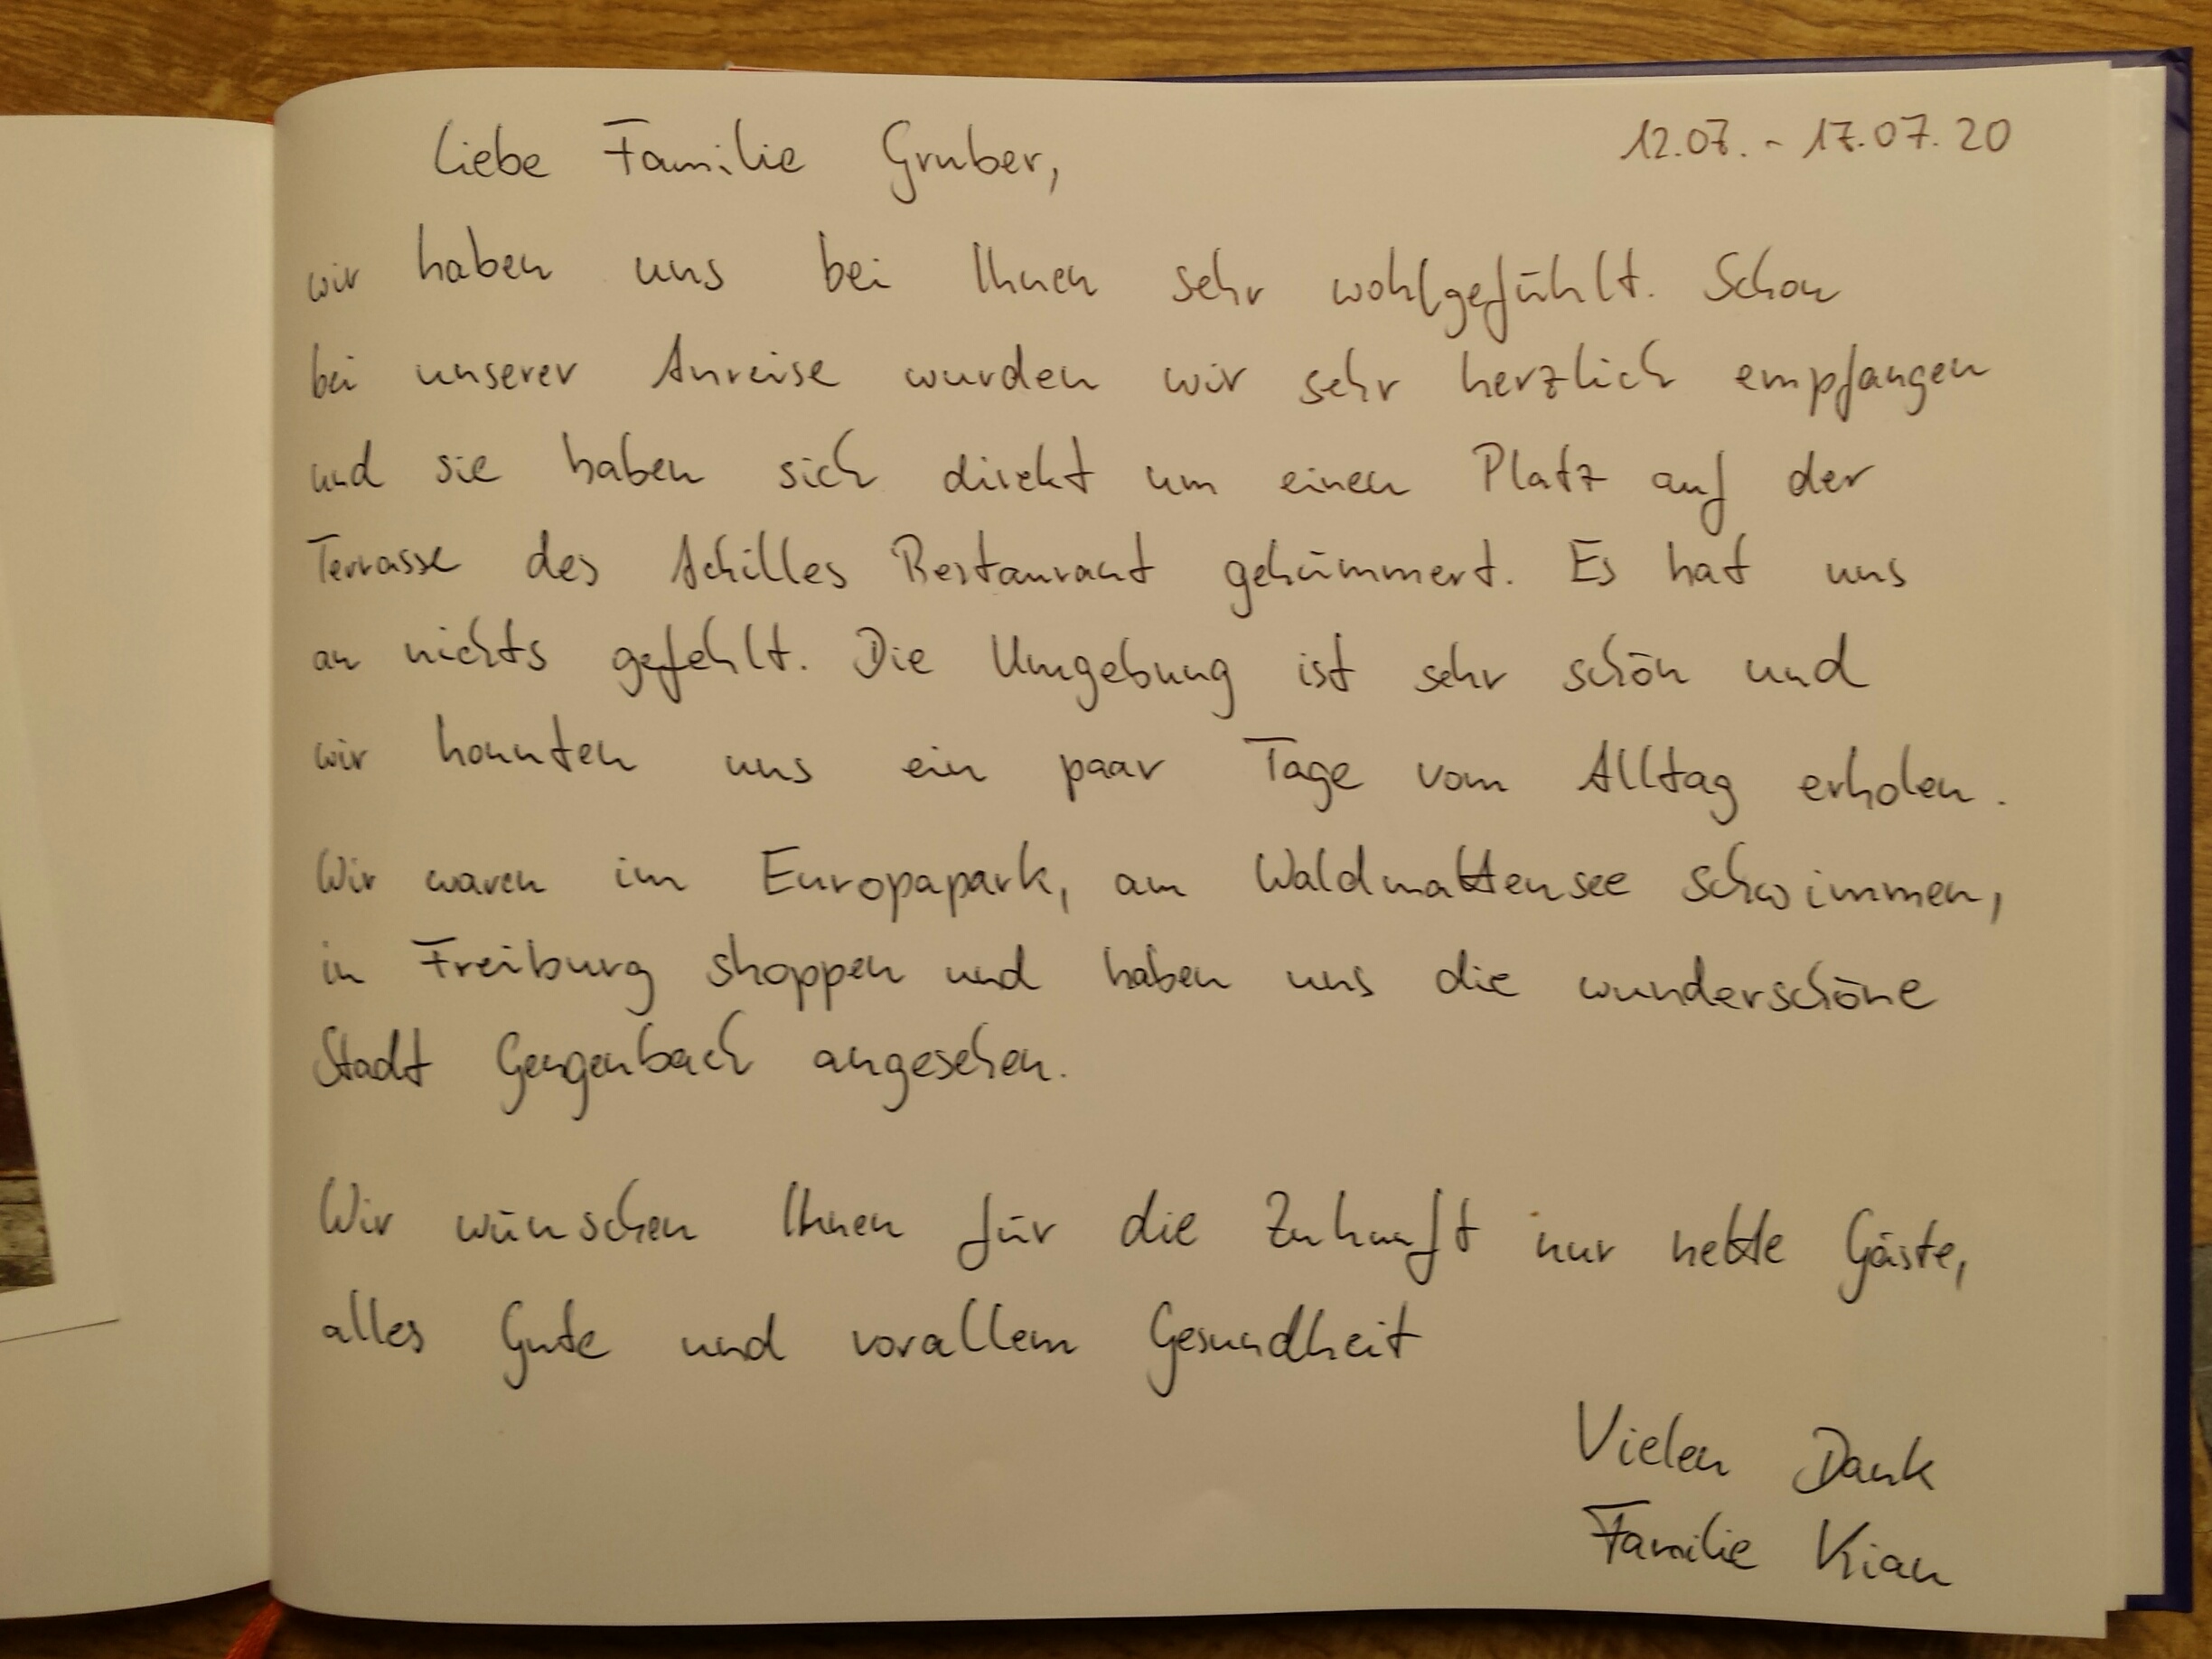 Liebe Familie Gruber,
12.07. - 17.07.20
wir haben uns bei Ihnen sehr wohlgefühlt. Schon
bei unserer Anreise wurden wir sehr herzlich empfangen
und sie haben sich direkt um einen Platz auf der
Terrasse des Achilles Restaurant gekümmert. Es hat uns
an nichts gefehlt. Die Umgebung ist sehr schön und
wir konnten uns ein paar Tage vom Alltag erholen.
Wir waren im Europapark, am Waldmattensee schwimmen,
in Freiburg shoppen und haben uns die wunderschöne
Stadt Gengenbach angesehen.
Wir wünschen Ihnen für die Zukunft nur nette Gäste,
alles Gute und vorallem Gesundheit
Vielen Dank
Familie Kian